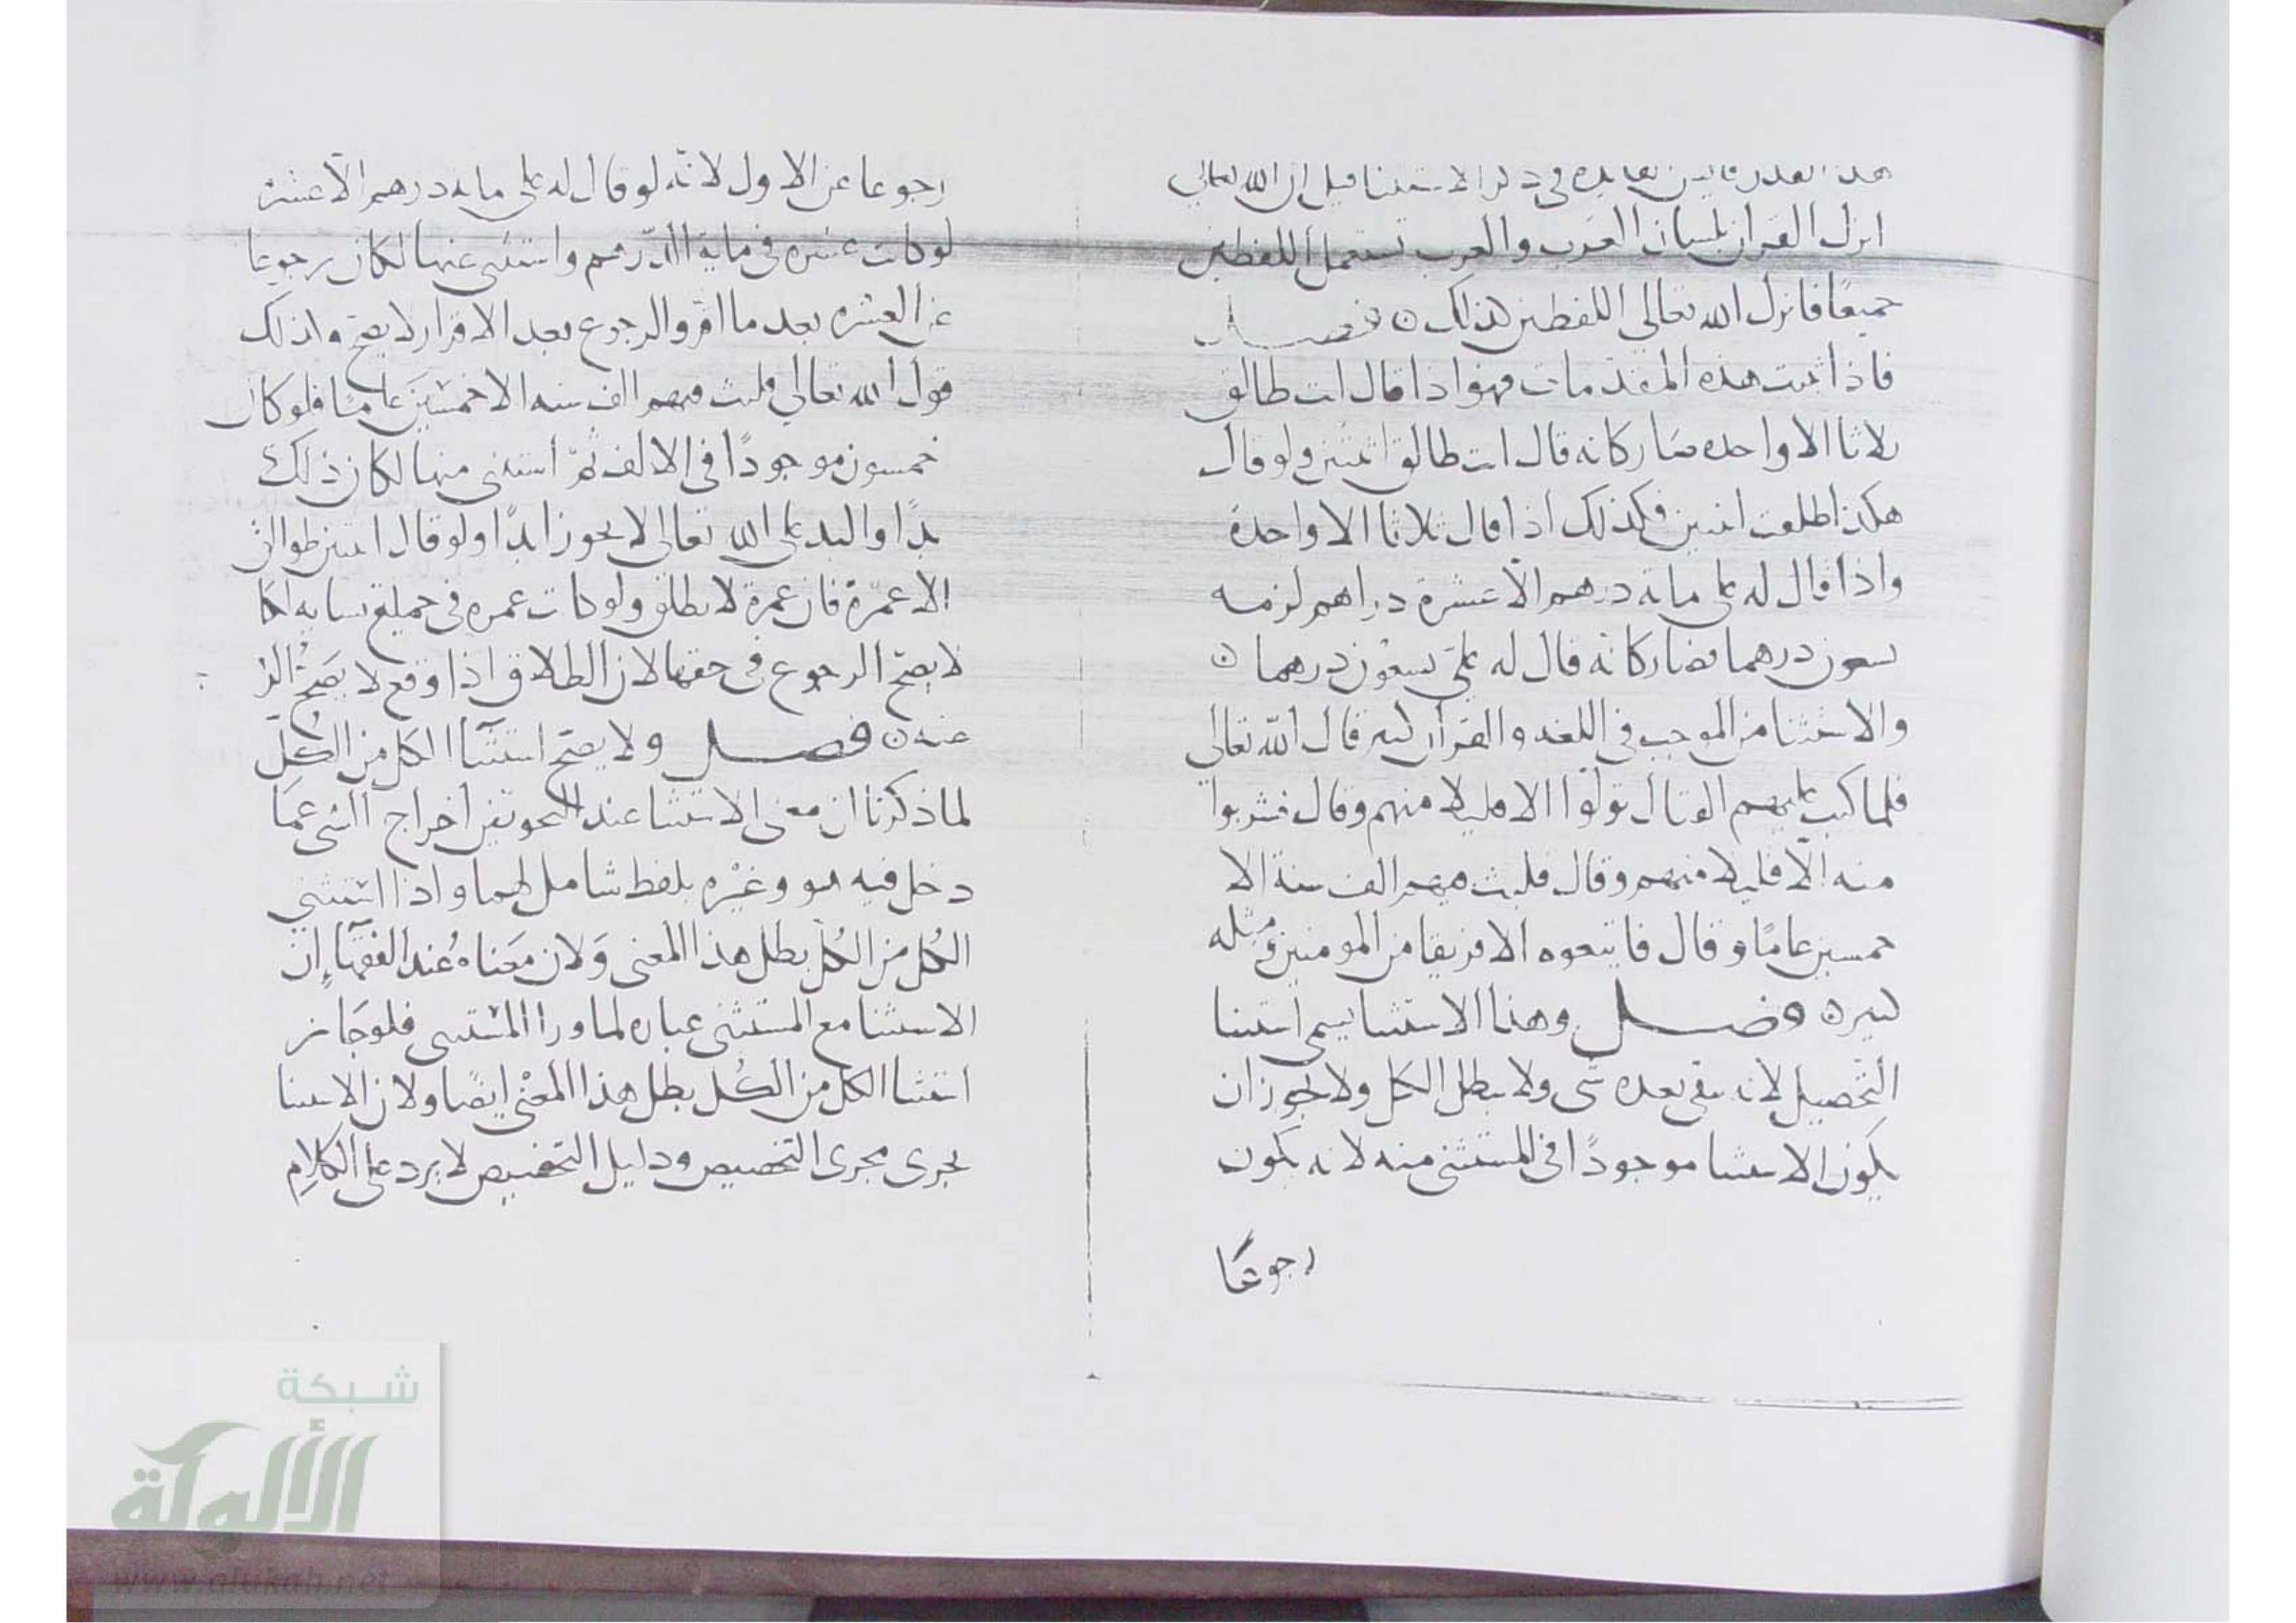 هذا القدر فأيش الفايده في ذكر الاستثنا قيل ان الله تعالى
انزل القران بلسان العرب والعرب تستعمل اللفظين
جميعًا فانزل الله تعالى اللفظين لذلك ن فصل
فاذا ثبت هذه المقدمات فهو اذا قال انت طالق
ثلاثا الا واحده صار كانه قال انت طالق اثنتين ولو قال
هكذا طلقت اثنتين فكذلك اذا قال ثلاثا الا واحدة
واذا قال له على مائة درهم الا عشرة دراهم لزمه
تسعون درهما فصار كانه قال له عليّ تسعون درهما ن
والاستثنا من الموجب في اللغه والقران كثير قال الله تعالى
فلما كتب عليهم القتال تولوا الا قليلا منهم وقال فشربوا
منه الا قليلا منهم وقال فلبث فيهم الف سنة الا
خمسين عامًا وقال فاتبعوه الا فريقا من المومنين ومثله
كثير ن فصل وهذا الاستثنا يسمى استثنا
التحصيل لانه يبقى بعده شي ولا يبطل الكل ولا يجوز ان
يكون الاستثنا موجودًا في المستثنى منه لانه يكون
رجوعًا
رجوعا عن الاول لانه لو قال له على مايه درهم الا عشرة
لو كانت عشره في ماية الدرهم واستثنى عنها لكان رجوعا
عن العشره بعد ما اقر والرجوع بعد الاقرار لا يصح وكذلك
قول الله تعالى فلبث فيهم الف سنه الا خمسين عامًا فلو كان
خمسون موجودًا في الالف ثمّ استثنى منها لكان ذلك
بدًا والبد على الله تعالى لا يجوز ابدًا ولو قال انتن طوالق
الا عمرة فان عمرة لا تطلق ولو كانت عمره في جملة نسايه لكا
لا يصح الرجوع في حقها لان الطلاق اذا وقع لا يصح الر
عنه ن فصل ولا يصح استثنا الكل من الكل
لما ذكرنا ان معنى الاستثنا عند النحويين اخراج الشي عما
دخل فيه هو وغيره بلفظ شامل لهما واذا استثنى
الكل من الكل بطل هذا المعنى ولان معناه عند الفقهاء ان
الاستثنا مع المستثنى عباره لما ورا المستثنى فلو جاز
استثنا الكل من الكل بطل هذا المعنى ايضًا ولان الاستثنا
يجرى مجرى التخصيص ودليل التخصيص لا يرد على الكلام
شبكة
الألوكة
www.alukah.net